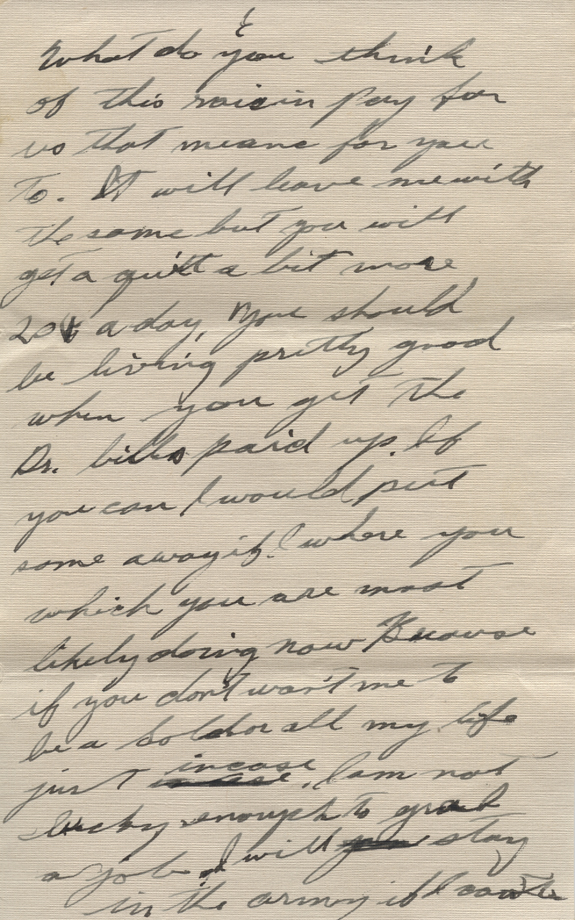 What do you think
of this raisin pay for
us that means for you
to. It will leave me with
the same but you will
get a quitt a bit more
20¢ a day, you should
be living pretty good
when you get the
Dr. bills paid up. If
you can I would put
some away if I where you
which you are most
likely doing now
if you don't wan't me to
be a soldor all my life
just incase. I am not
lucky enough to grab
a job I will stay
in the army if I